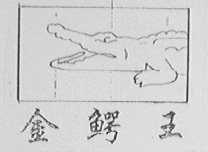 金鳄王